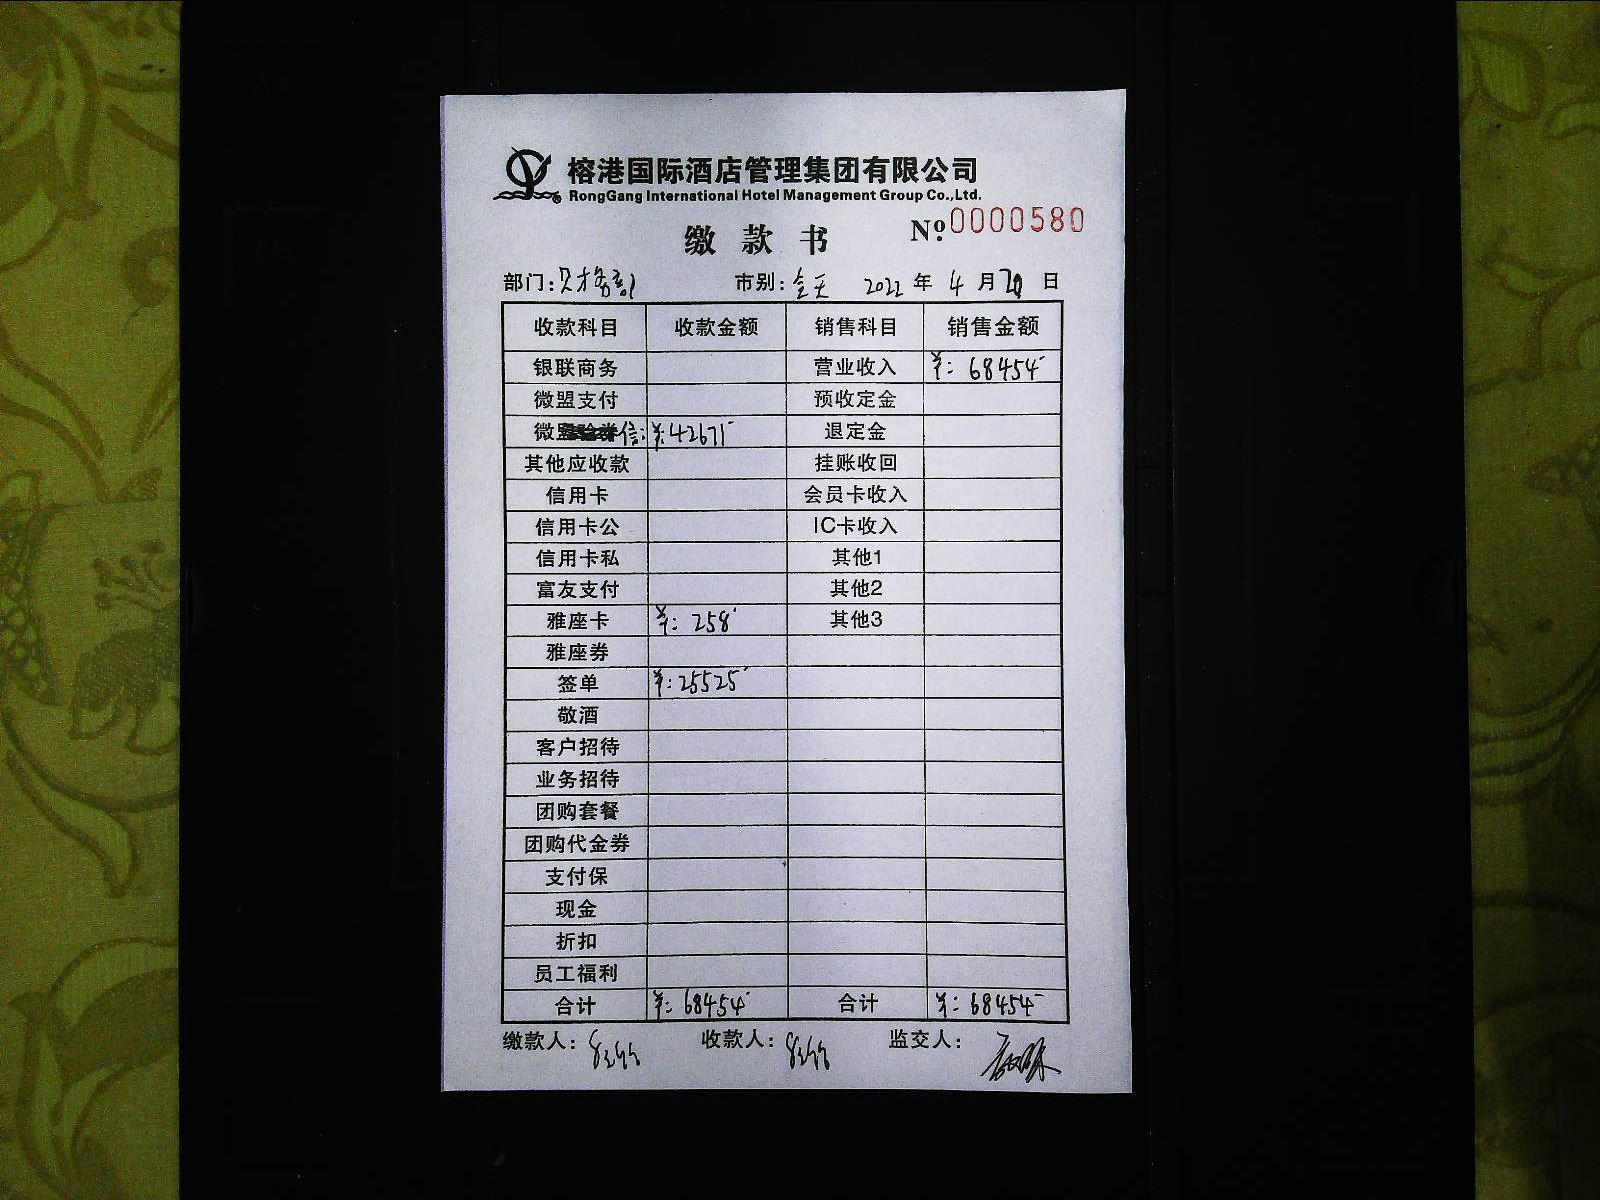 榕港国际酒店管理集团有限公司
RongGang International Hotel Management Group Co.,Ltd.
缴款书 Nº:0000580
部门:财务部 市别:全天 2022年4月20日
收款科目 收款金额 销售科目 销售金额
银联商务 营业收入 ¥:68454-
微盟支付 预收定金
微信:¥:42671- 退定金
其他应收款 挂账收回
信用卡 会员卡收入
信用卡公 IC卡收入
信用卡私 其他1
富友支付 其他2
雅座卡 ¥:258- 其他3
雅座券
签单 ¥:25525-
敬酒
客户招待
业务招待
团购套餐
团购代金券
支付保
现金
折扣
员工福利
合计 ¥:68454- 合计 ¥:68454-
缴款人: 收款人: 监交人: